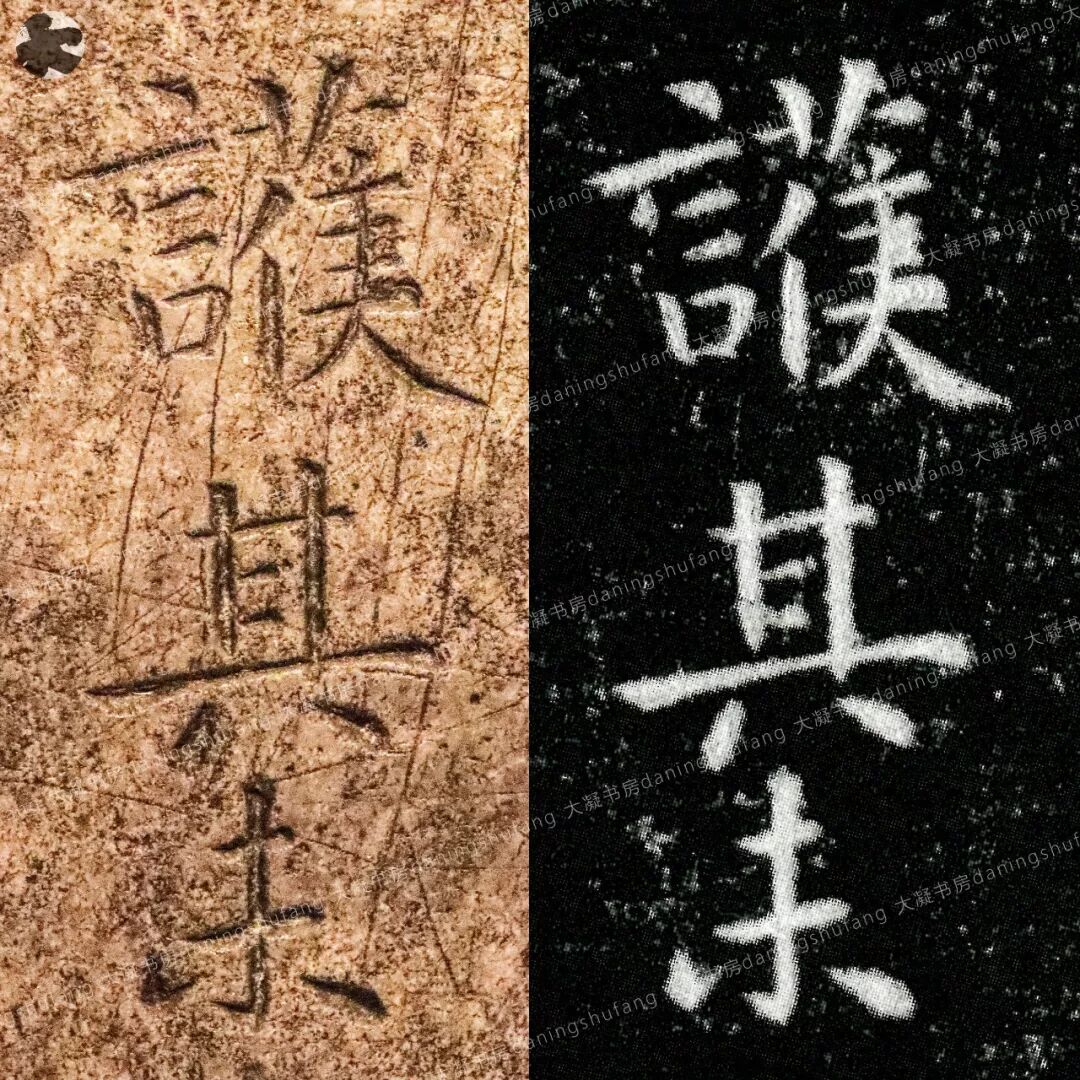 護其未
護其未
大凝书房daningshufang